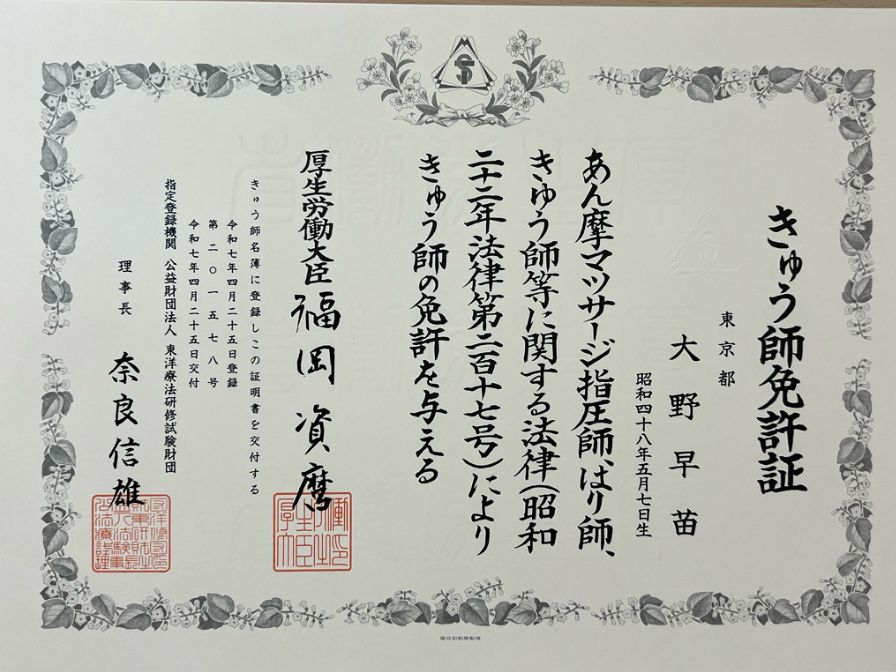 きゅう師免許証
東京都
大野早苗
昭和四十八年五月七日生
あん摩マツサージ指圧師、はり師、
きゆう師等に関する法律(昭和
二十二年法律第二百十七号)により
きゅう師の免許を与える
厚生労働大臣 福岡資麿
きゅう師名簿に登録しこの証明書を交付する
令和七年四月二十五日登録
第二〇一五七八号
令和七年四月二十五日交付
指定登録機関 公益財団法人 東洋療法研修試験財団
理事長 奈良信雄